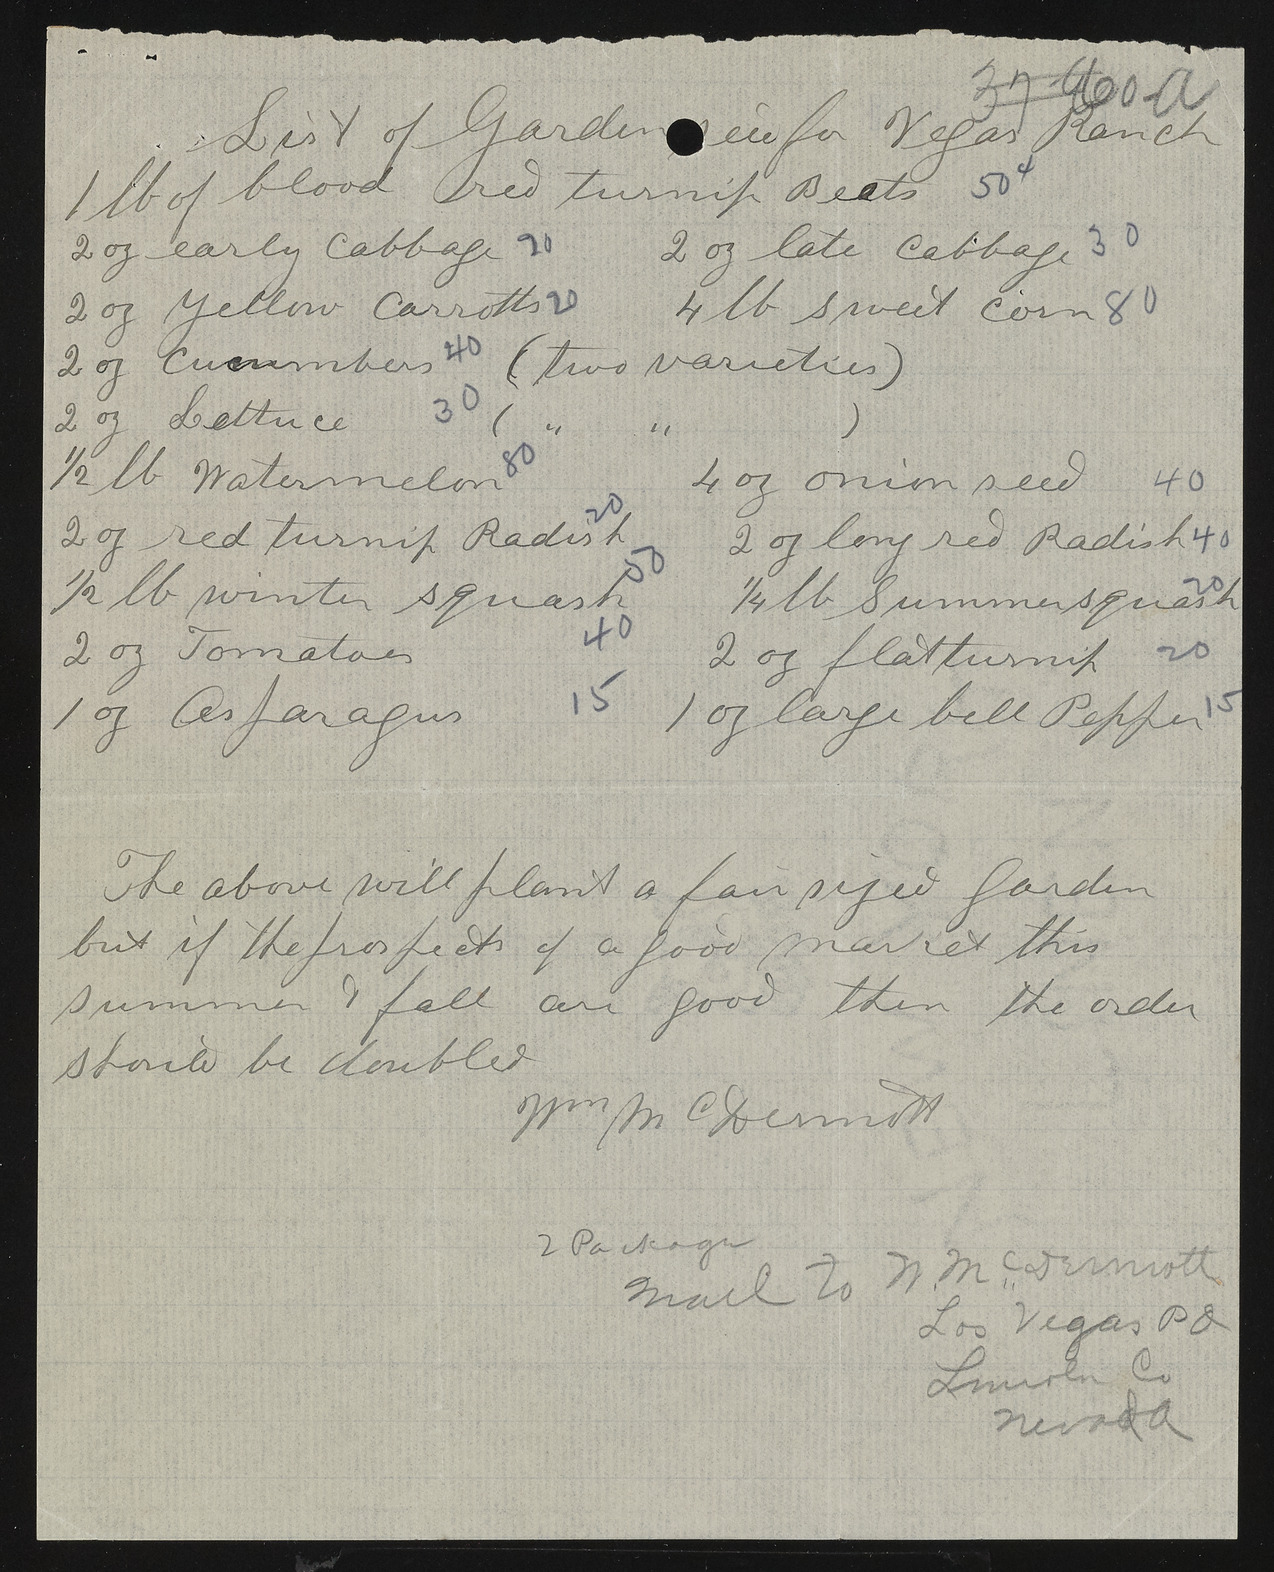 37-460-a
List of Garden seed for Vegas Ranch
1 lb of blood red turnip Beets 50¢
2 oz early Cabbage 20 2 oz late Cabbage 30
2 oz Yellow Carrotts 20 4 lb sweet corn 80
2 oz Cucumbers 40 (two varieties)
2 oz Lettuce 30 ( " " )
1/2 lb Watermelon 80 4 oz onion seed 40
2 oz red turnip Radish 20 2 oz long red Radish 40
1/2 lb winter squash 50 1/4 lb Summer squash 20
2 oz Tomatoes 40 2 oz flat turnip 20
1 oz Asparagus 15 1 oz large bell Pepper 15
The above will plant a fair sized Garden
but if the prospects of a good market this
summer & fall are good then the order
should be doubled
Wm McDermott
2 Package
Mail to W. McDermott
Los Vegas PO
Lincoln Co
Nevada